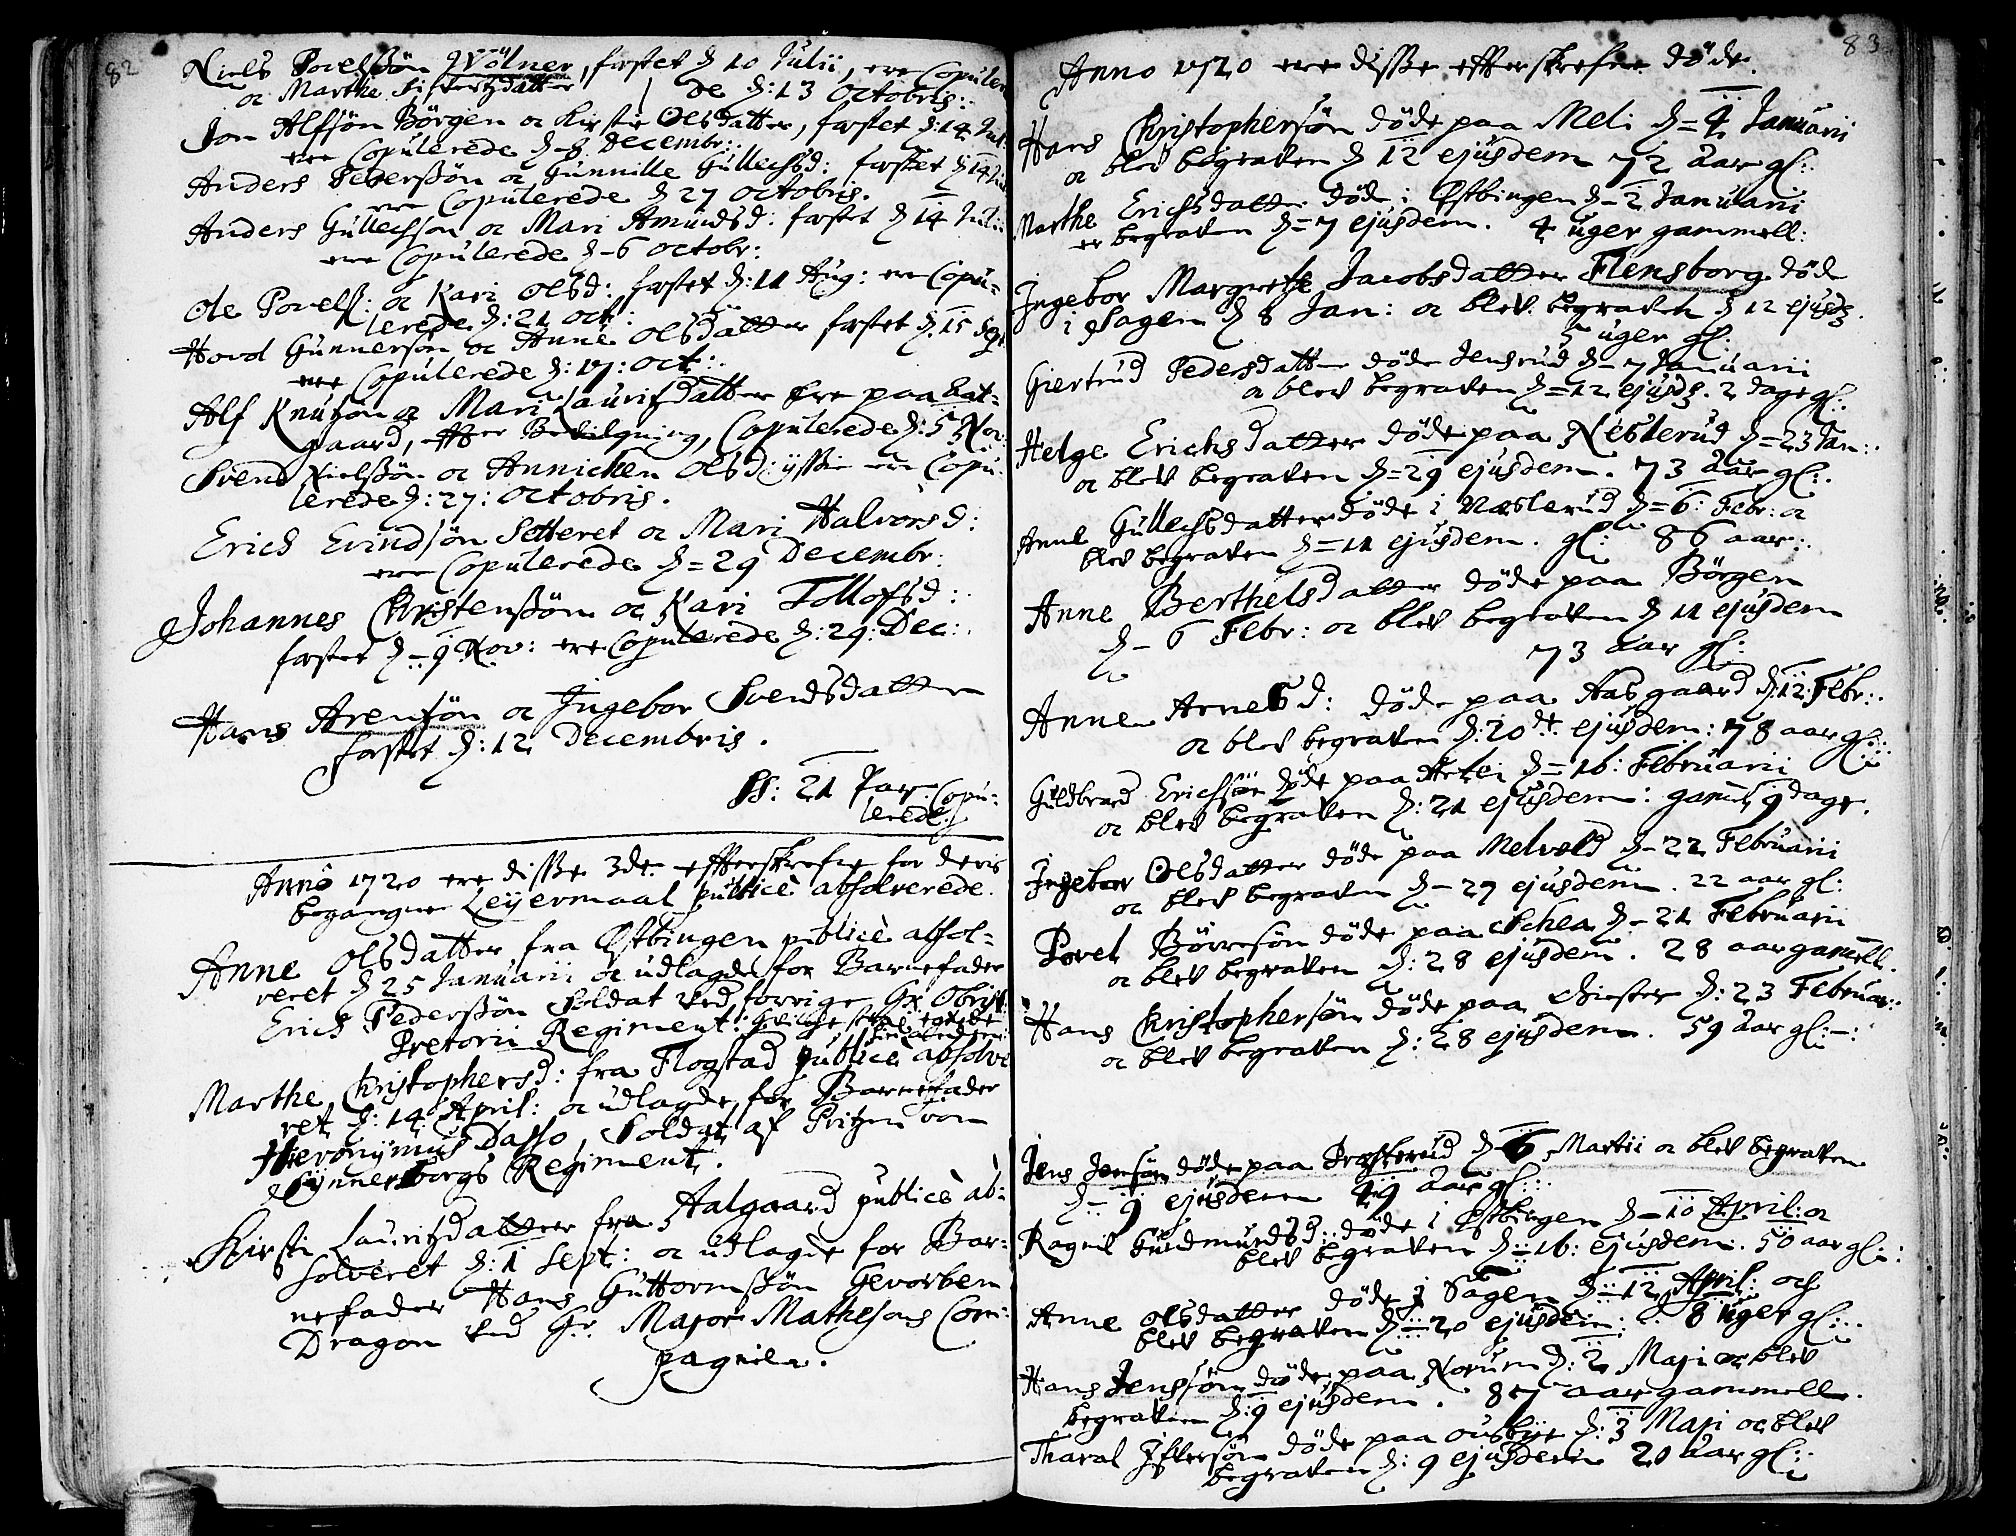 82
Niels Povelssøn Wölner, fæstet d 10 Julii, ere Copule
oc Marthe Sifertzdatter / de d: 13 Octobris:.
Jon Alfsøn Börgen oc Kirstie Olsdatter, fæstet d: 14 Jul:
ere Copulerede d=8 Decembr:.
Anders Pederssön oc Gunnille Gullechsd: fæstet d 14 Jul
ere Copulerede d 27 Octobris.
Anders Gullechsøn oc Mari Amundsd: fæstet d 14 Juli:
ere Copulerede d=6 Octobr:
Ole Povelss: oc Kari Olsd: fæstet d: 11 Aug: ere Copu=
lerede d: 21 Oct:
Hovol Gunnersøn oc Anne Olsdatter fæstet d. 15 Sept
ere Copulerede d: 17: Oct:.
Alf Knutsøn oc Mari Lauritzdatter ere paa
gaard, effter Bevilgning, Copulerede d: 5 Nov:
Svend Nielssøn oc Annichen Olsd: ere Copu
lerede d: 27: Octobris.
Erich Evindsøn Setteret oc Mari Halvorsd:
ere Copulerede d=29 Decembr:
Johannes Christenssøn oc Kari Tollofsd:
fæstet d=9 Nov: ere Copulerede d: 29: Dec:.
Hans Arensøn oc Ingebor Svendsdatter
fæstet d: 12 Decembris.
SS: 21 Par Copu=
lerede.
Anno 1720 ere disse 3de effterskrefne for deris
begangne Leyermaal publicè absolverede.
Anne Olsdatter fra Østbingen publicè absol=
veret d 25 Januarii oc udlagde for Barnefader
Erich Pederssøn Soldat ved forrige Hr Obrist
Pretorii Regiment:
Marthe Christophersd: fra Flogstad publicè absolve
ret d: 14 April: oc udlagde for Barnefader
Hieronymus Dasso, Soldat af Pritzen von
Regiment.
Kirsti Lauritzdatter fra Aalgaard publicè ab=
solveret d: 1 Sept: oc udlagde for Bar=
nefader Hans Guttormssøn Gevorben
Dragon ved Hr. Major Mathesons Com=
pagnie.
83
Anno 1720 ere disse effterskrefne døde.
Hans Christophersøn døde paa Meli d=4 Januarii
oc blev begraven d 12 ejusdem 72 aar gl:.
Marthe Erichsdatter døde i Østbingen d=2 Januarii
er begraven d=7 ejusdem. 4 uger gammell:
Ingebor Margrethe Jacobsdatter Flensborg døde
i Sagen d 8 Jan: oc blev begraven d 12 ejusd
5 uger gl:
Giertrud Pedersdatter døde Jensrud d=7 Januarii
oc blev begraven d=12 ejusd. 2 dage gl:
Helge Erichsdatter døde paa Nesterud d=23 Jan:.
oc blev begraven d=29 ejusdem. 73 aar gl:.
Anne Gullechsdatter døde i Næsterud d=6: Febr: oc
blev begraven d=11 ejusdem. gl: 86 aar:.
Anne Berthelsdatter døde paa Börgen
d=6 Febr: oc blev begraven d 11 ejusdem
73 aar gl:
Anne Arnesd: døde paa Aasgaard d: 12 Febr:.
oc blev begraven d: 20de ejusdem: 78 aar gl:.
Guldbrand Erichsøn døde paa Artei d=16: Februarii
oc blev begraven d: 21 ejusdem: gamel 9 dage.
Ingebor Olsdatter døde paa Melvold d=22 Februarii
oc blev begraven d=27 ejusdem. 22 aar gl:
Povel Børresøn døde paa Schea d=21 Februarii
oc blev begraven d: 28 ejusdem. 28 aar gamell.
Hans Christophersøn døde paa Chiester d: 23 Februar:
oc blev begraven d: 28 ejusdem. 59 aar gl:-:
Jens Jensøn døde paa Præsterud d=6 Martii oc blev begraven
d= 9 ejusdem 49 aar gl:
Ragnil Gudmundsd: døde i Østbingen d=10 April: oc
blev begraven d=16: ejusdem. 50 aar gl:
Anne Olsdatter døde i Sagen d=12 April: och
blev begraven d=20 ejusdem: 8 uger gl:.
Hans Jenssøn døde paa Norum d: 2 Maji oc blev
begraven d: 9 ejusdem. 87 aar gammell.
Tharal Iffversøn døde paa Ousbye d: 3 Maji oc blev
begraven d: 9 ejusdem 20 aar gl: